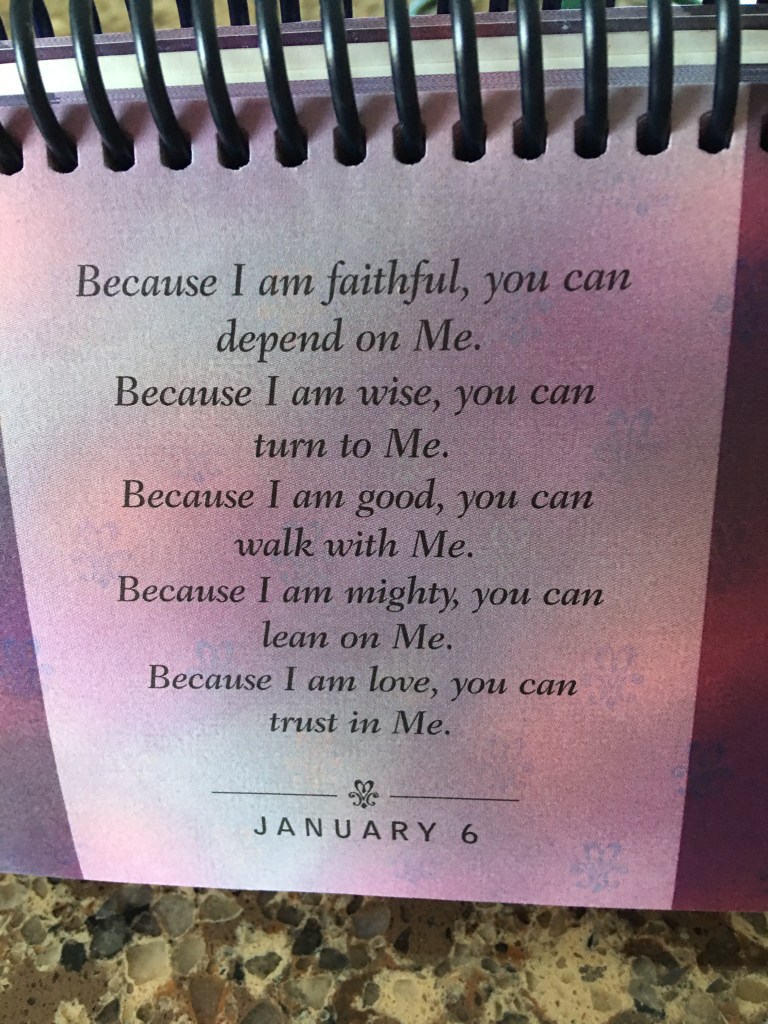 Because I am faithful, you can
depend on Me.
Because I am wise, you can
turn to Me.
Because I am good, you can
walk with Me.
Because I am mighty, you can
lean on Me.
Because I am love, you can
trust in Me.
JANUARY 6